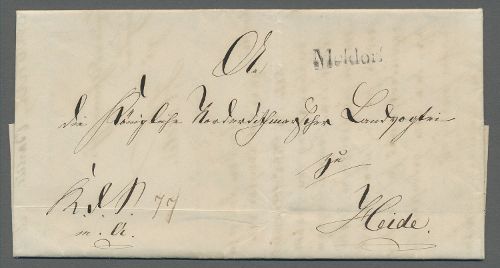 An
Meldorf
die Königliche Norderdithmarscher Landvogtei
zu
K. d. S. 77
m. A.
Heide.